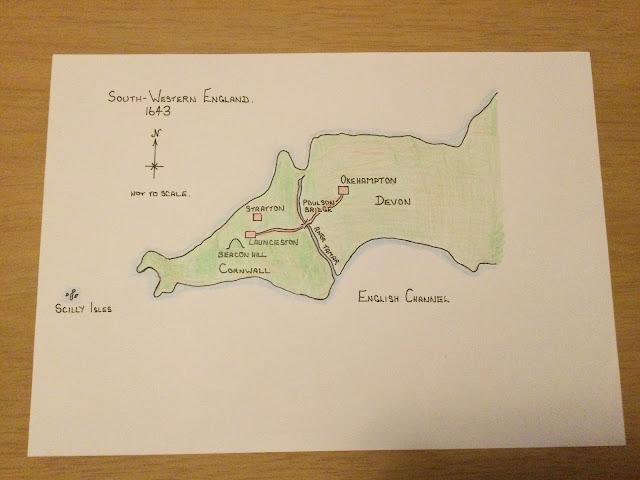 SOUTH-WESTERN ENGLAND.
1643
N
NOT TO SCALE.
OKEHAMPTON
STRATTON
POULSON
BRIDGE
DEVON
LAUNCESTON
RIVER TAMAR
BEACON HILL
CORNWALL
ENGLISH CHANNEL
SCILLY ISLES